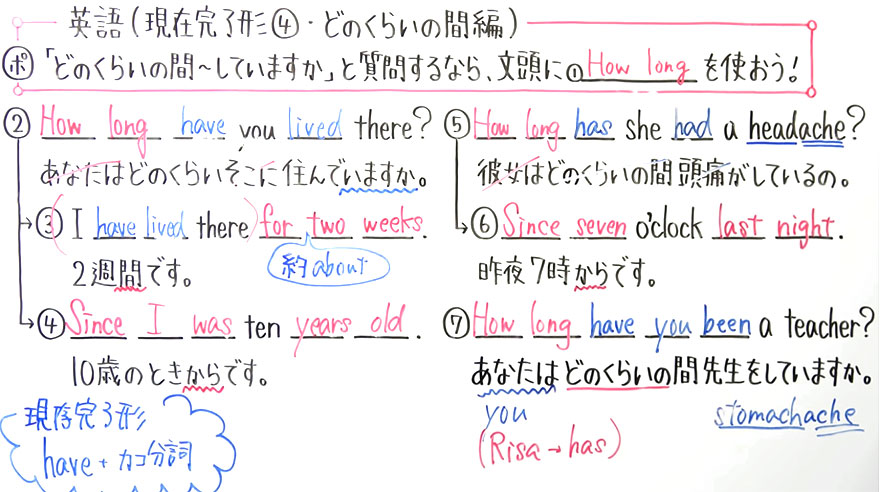 英語(現在完了形④・どのくらいの間編)
ポ「どのくらいの間～していますか」と質問するなら、文頭に①How longを使おう!
② How long have you lived there?
あなたはどのくらいそこに住んでいますか。
③ I have lived there for two weeks.
約about
2週間です。
④ Since I was ten years old.
10歳のときからです。
現在完了形
have + カコ分詞
⑤ How long has she had a headache?
彼女はどのくらいの間頭痛がしているの。
⑥ Since seven o'clock last night.
昨夜7時からです。
⑦ How long have you been a teacher?
あなたはどのくらいの間先生をしていますか。
you
stomachache
(Risa→has)